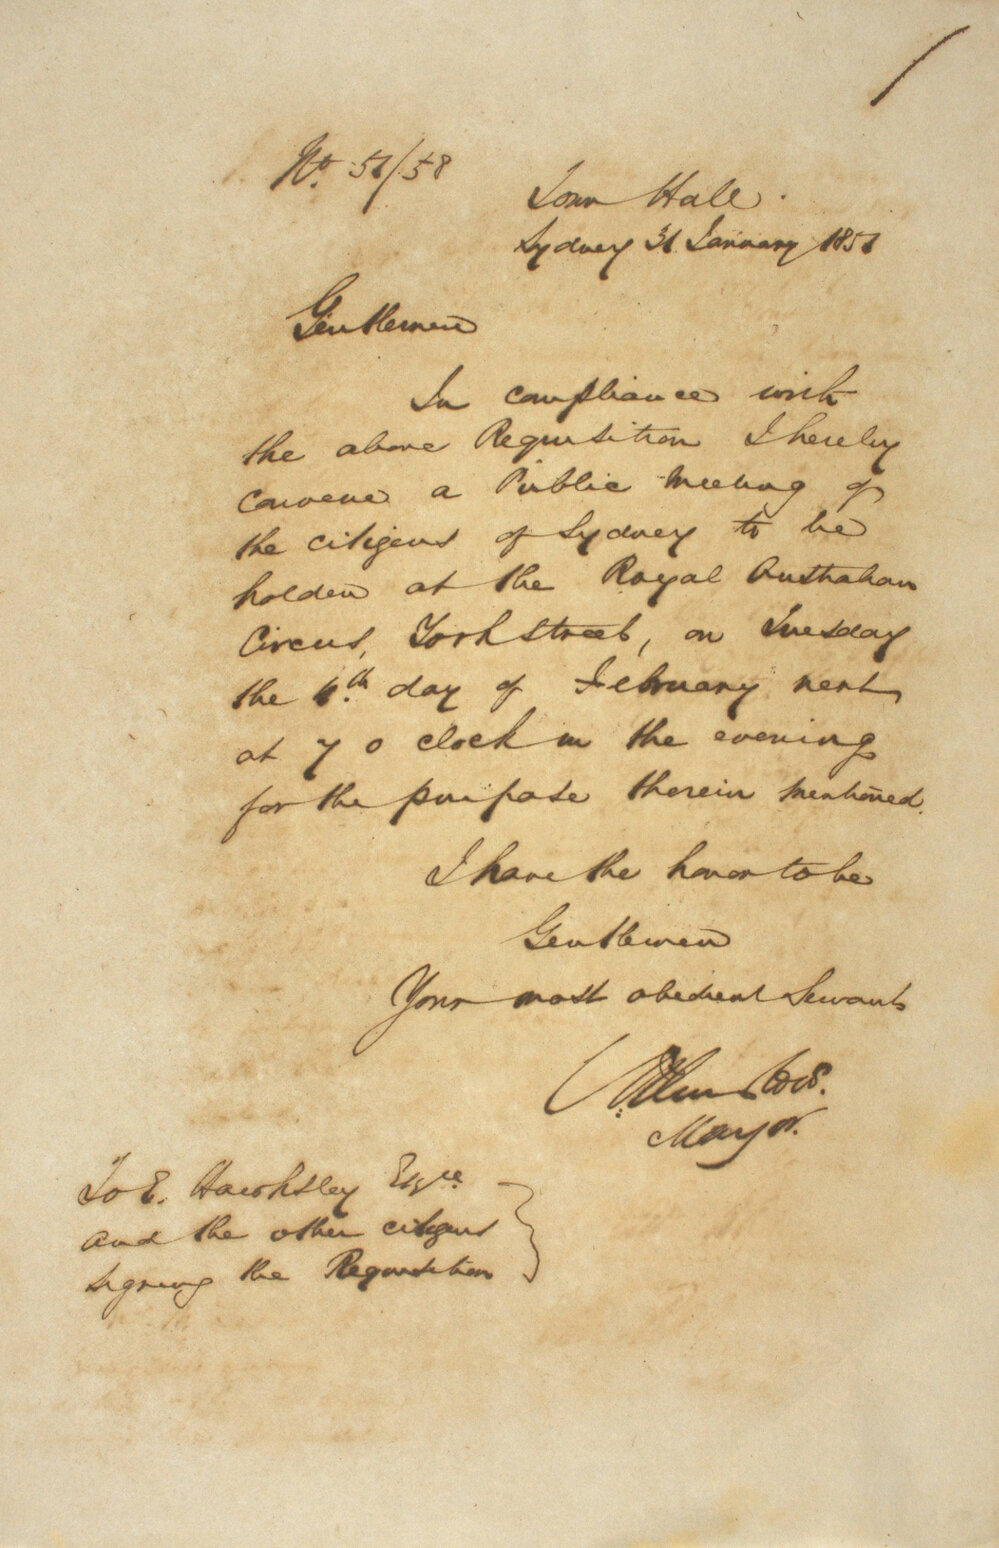 No. 51/58
Town Hall
Sydney 31 January 1851
Gentlemen
In compliance with
the above Requisition I hereby
convene a Public Meeting of
the citizens of Sydney to be
holden at the Royal Australian
Circus, York Street, on Tuesday
the 4th. day of February next
at 7 o clock in the evening
for the purpose therein mentioned.
I have the honor to be
Gentlemen
Your most obedient Servant
Mayor.
To E. Hawksley Esqre.
and the other citizens
signing the Requisition